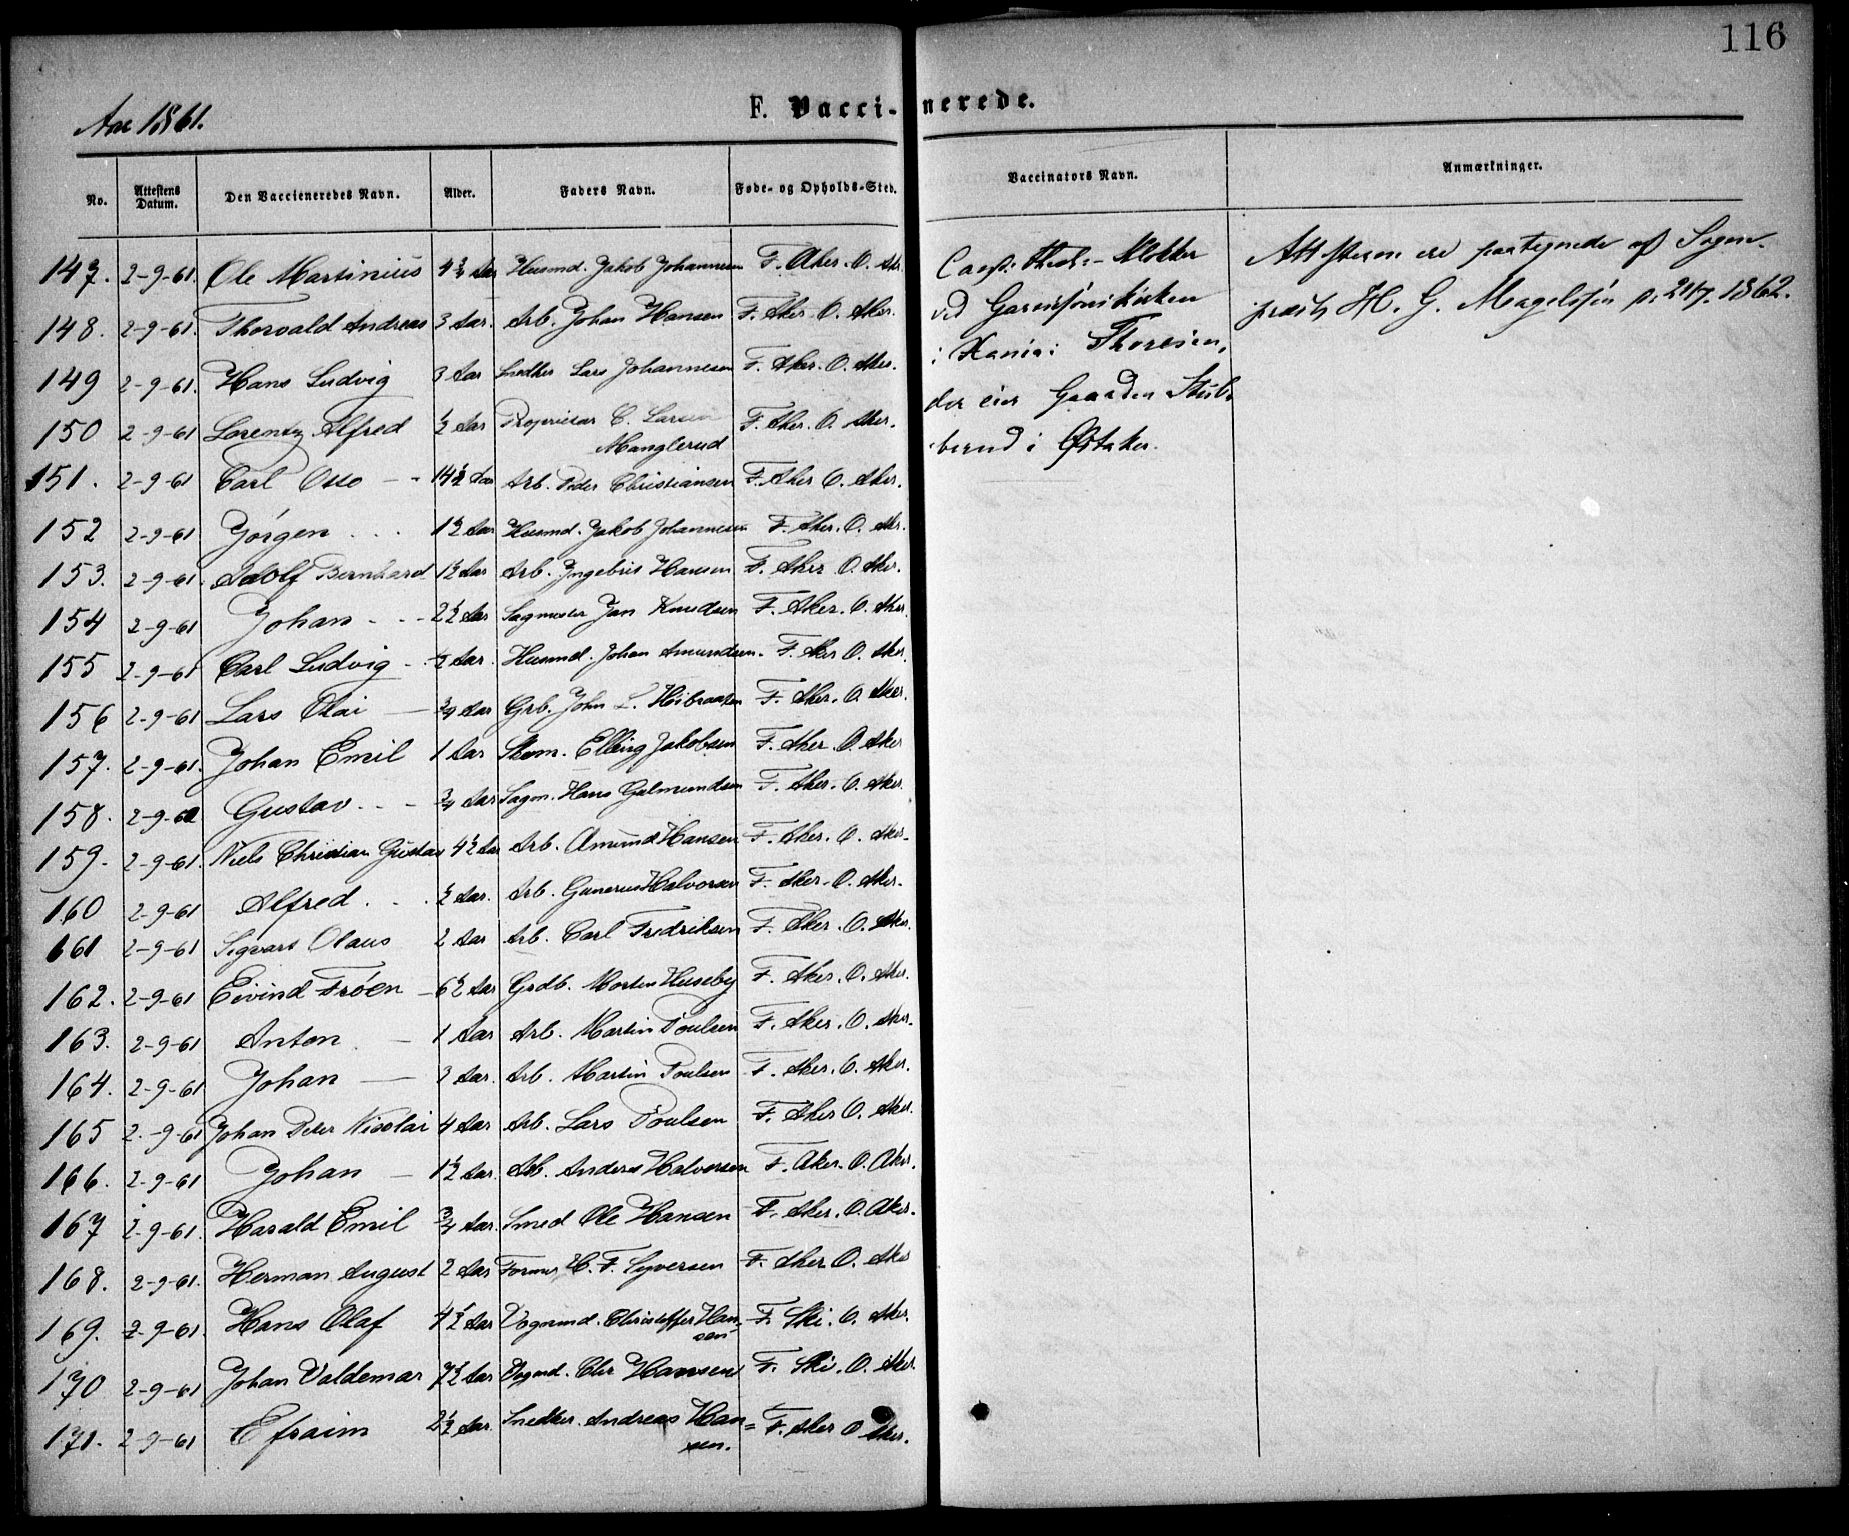 116
Aar 1861.
F. Vaccinerede.
No. Attestens Datum. Den Vaccieneredes Navn. Alder. Faders Navn. Føde- og Opholds-Sted. Vaccinators Navn. Anmærkninger.
147. 2-9-61. Ole Martinius Aar Husmd. Jakob Johannesen F. Aker. O. Akr.
148. 2-9-61. Thorvald Andreas 3 Aar. Arb. Johan Hansen F. Aker. O. Aker.
149 2-9-61. Hans Ludvig 3 Aar Snedker Lars Johannesen F. Aker. O. Aker.
150 2-9-61 Lorentz Alfred ½ Aar Proprietær C. Larsen F. Aker. O. Aker.
Manglerud
151. 2-9-61 Carl Otto - - 14½ Aar Arb. Peder Christiansen F. Aker O. Aker.
152 2-9-61 Jørgen . . . 1½ Aar Husmd. Jakob Johannesen F. Aker. O. Akr.
153. 2-9-61. Adolf Bernhard 1½ Aar Arb. Yngebret Hansen F. Aker O. Aker.
154 2-9-61 Johan - - - 2½ Aar Sagmester Jan Knudsen F. Aker. O. Aker
155 2-9-61 Carl Ludvig - ½ Aar. Husmd. Johan Amundsen. F. Aker O. Aker.
156 2-9-61 Lars Olai — ¾ Aar Grb. John L. Høibraaten F. Aker. O. Aker.
157. 2-9-61. Johan Emil 1 Aar Skom. Elling Jakobsen F. Aker. O. Aker
158. 2-9-61 Gustav - - - ¾ Aar Sagm. Hans Galmundsen F. Aker. O. Aker.
159. 2-9-61. Niels Christian Gustav 4½ Aar Arb. Amund Hansen F. Aker. O. Aker.
160 2-9-61 Alfred . . . ½ Aar. Arb. Gunerus Halvorsen F. Aker. O. Aker.
161 2-9-61 Sigvart Olaus 2 Aar Arb. Carl Fredriksen F. Aker. O. Aker.
162. 2-9-61 Eivind Frøen - 6½ Aar Grdb. Morten Huseby F. Aker. O. Aker.
163. 2-9-61 Anton — 1 Aar Arb. Martin Poulsen F. Aker. O. Aker.
164. 2-9-61 Johan — 3 Aar. Arb. Martin Poulsen F. Aker. O. Aker.
165 2-9-61 Johan Peter Nicolai 4 Aar Arb. Lars Poulsen F. Aker O. Aker.
166. 2-9-61 Johan — 1½ Aar. Arb. Anders Halvorsen F. Aker. O. Aker.
167 2-9-61. Harald Emil ¾ Aar. Smed Ole Hansen F. Aker. O. Aker.
168. 2-9-61. Herman August 2 Aar Former H. F. Syversen F. Aker O. Aker
169. 2-9-61. Hans Olaf 4½ Aar Vognmd. Christoffer Han=
sen F. Ski. O. Aker.
170 2-9-61 Johan Valdemar 7½ Aar Vogmd. Chr Hansen F. Ski. O. Aker
171. 2-9-61 Efraim 2½ Aar. Snedker. Andreas Han=
sen. F. Aker O Aker.
Klokker
ved Garnisonskirken
i Xania: Thoresen,
der eier Gaarden Stubb
berud i Østaker.
Attesterne ere paategnede af Sogne-
præst H. G. Magelssen 1862.